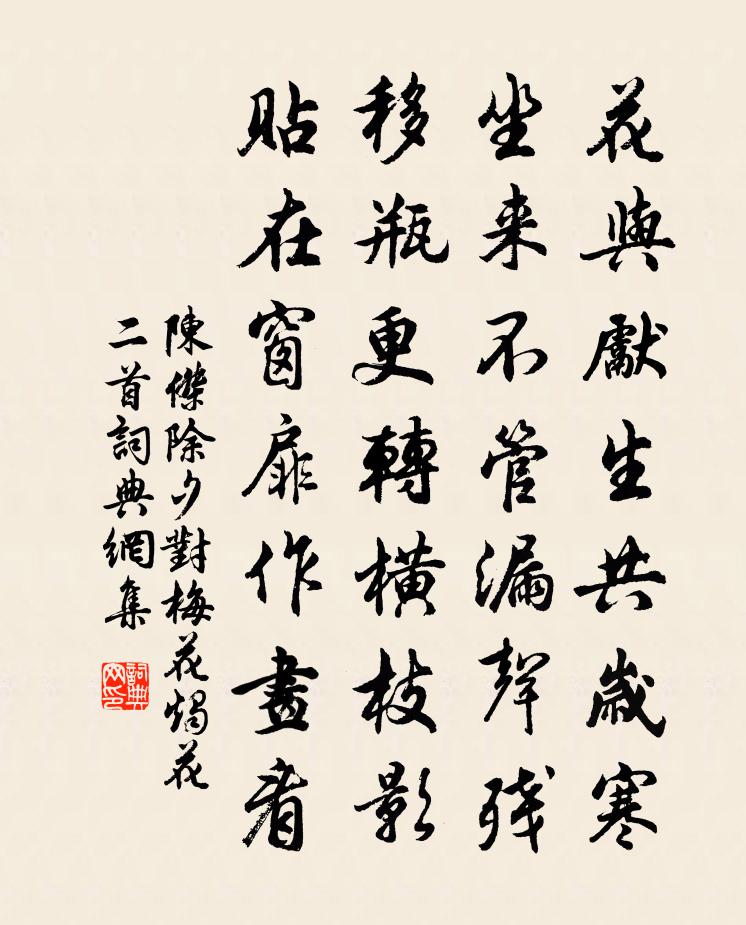 花與獻生共歲寒
坐来不管漏聲残
移瓶更轉橫枝影
貼在窗扉作畫看
陳傑除夕對梅花燭花
二首詞典網集
詞典
网印